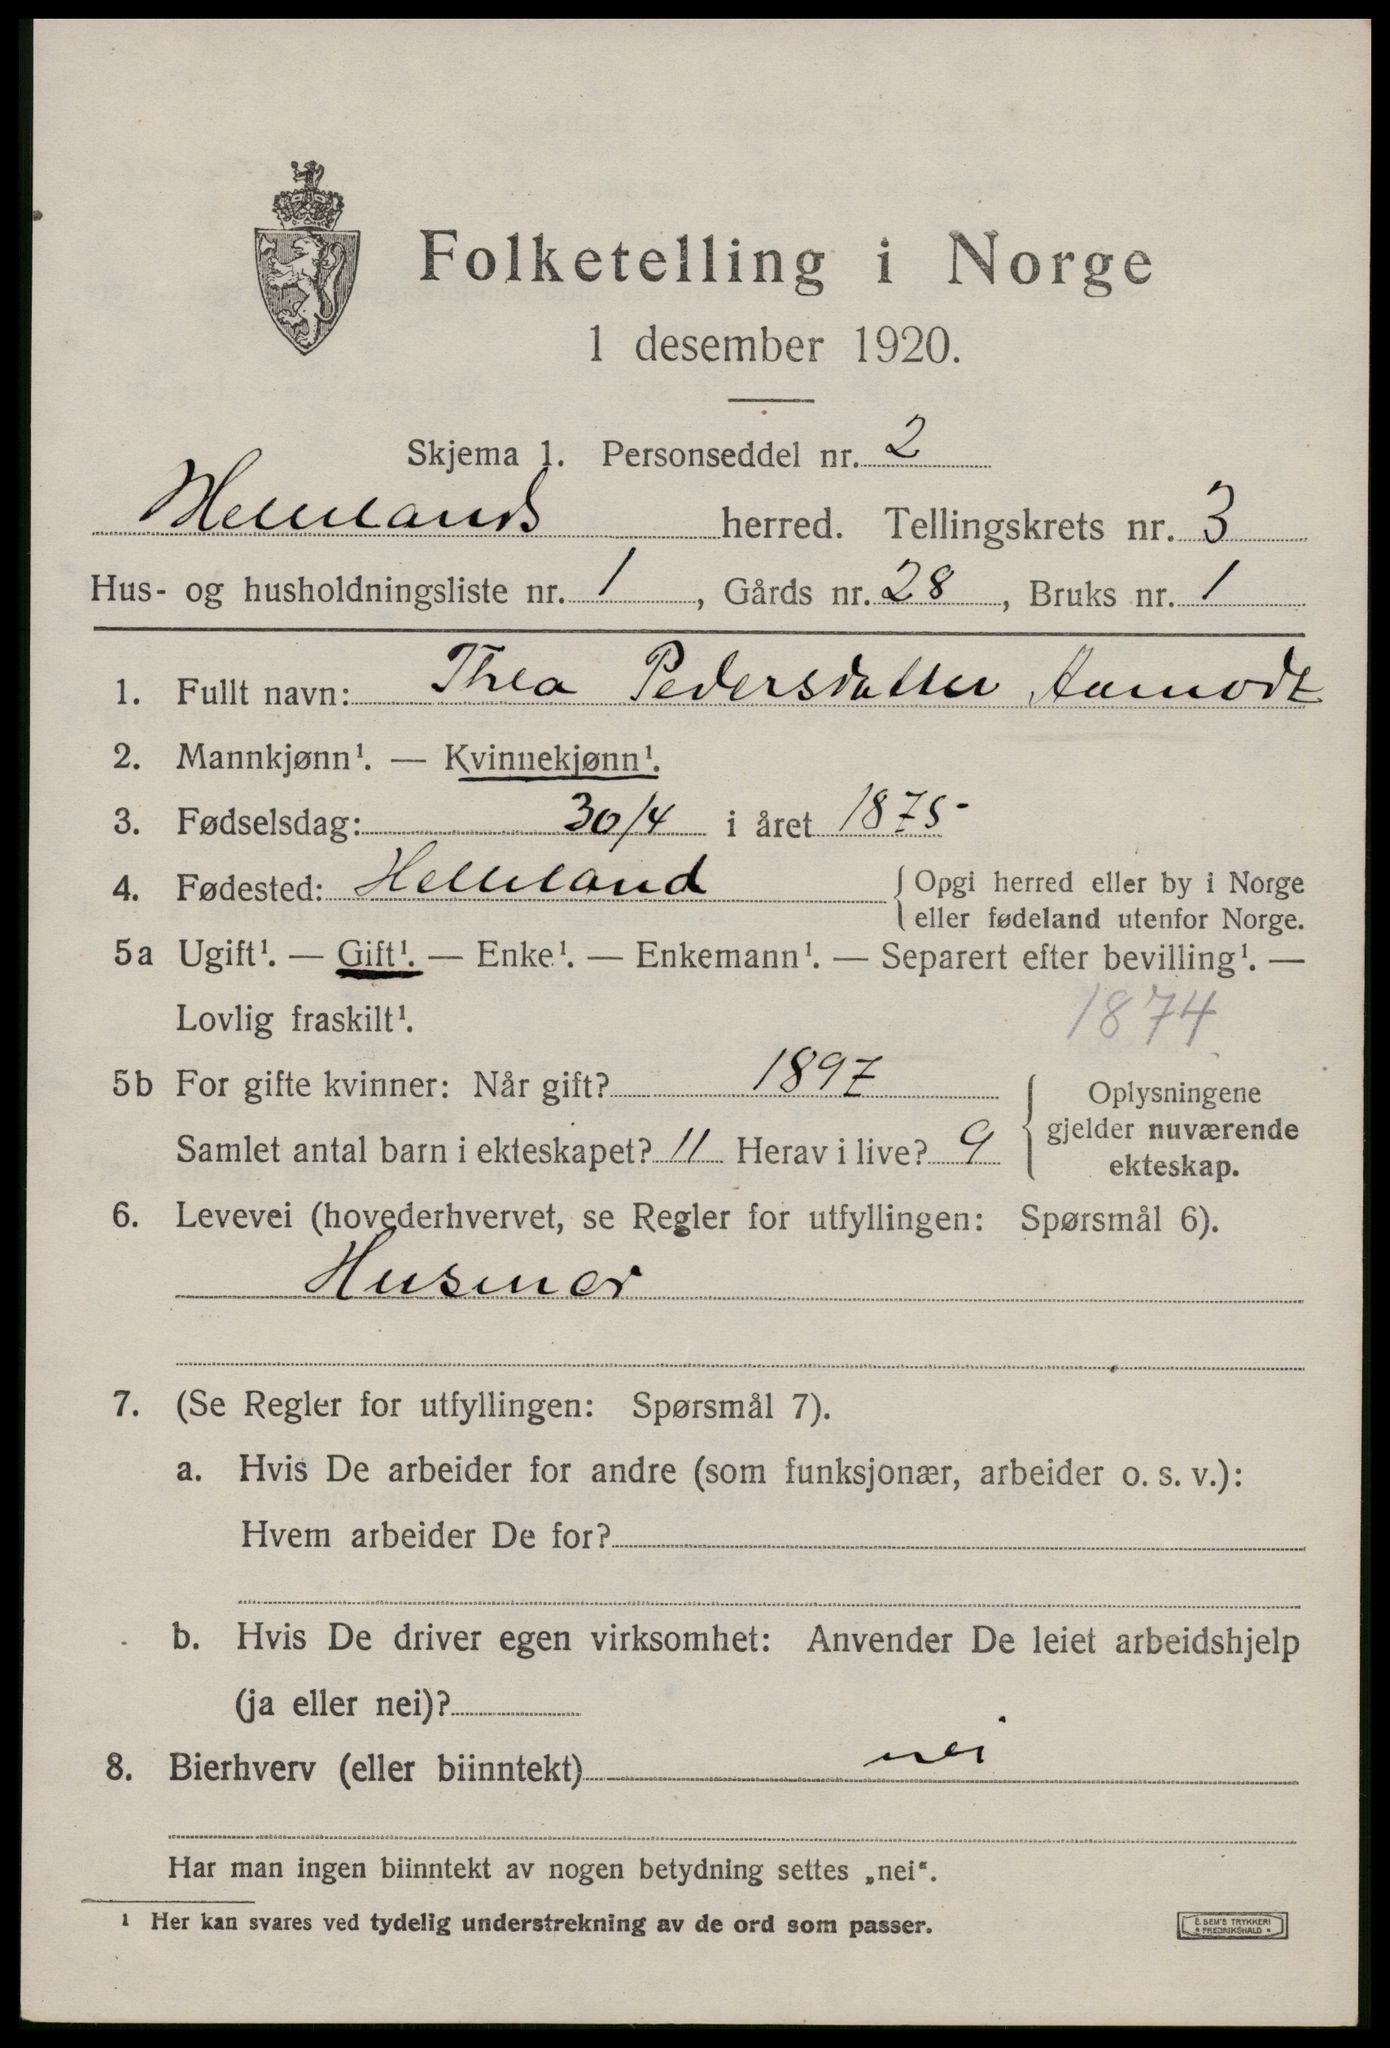 Folketelling i Norge
1 desember 1920.
Skjema 1. Personseddel nr. 2
Hellelands herred. Tellingskrets nr. 3
Hus- og husholdningsliste nr. 1, Gårds nr. 28, Bruks nr. 1
1. Fullt navn: Thea Pedersdatter Aamodt
2. Mannkjønn¹. — Kvinnekjønn¹.
3. Fødselsdag: 30/4 i året 1875
4. Fødested: Helleland { Opgi herred eller by i Norge
eller fødeland utenfor Norge.
5a Ugift¹. — Gift¹. — Enke¹. — Enkemann¹. — Separert efter bevilling¹. —
Lovlig fraskilt¹. 1874
5b For gifte kvinner: Når gift? 1897 { Oplysningene
gjelder nuværende
ekteskap.
Samlet antal barn i ekteskapet? 11 Herav i live? 9
6. Levevei (hovederhvervet, se Regler for utfyllingen: Spørsmål 6).
Husmor
7. (Se Regler for utfyllingen: Spørsmål 7).
a. Hvis De arbeider for andre (som funksjonær, arbeider o. s. v.):
Hvem arbeider De for?
b. Hvis De driver egen virksomhet: Anvender De leiet arbeidshjelp
(ja eller nei)?
8. Bierhverv (eller biinntekt) nei
Har man ingen biinntekt av nogen betydning settes „nei".
¹ Her kan svares ved tydelig understrekning av de ord som passer.
E. SEM'S TRYKKERI
FREDRIKSHALD